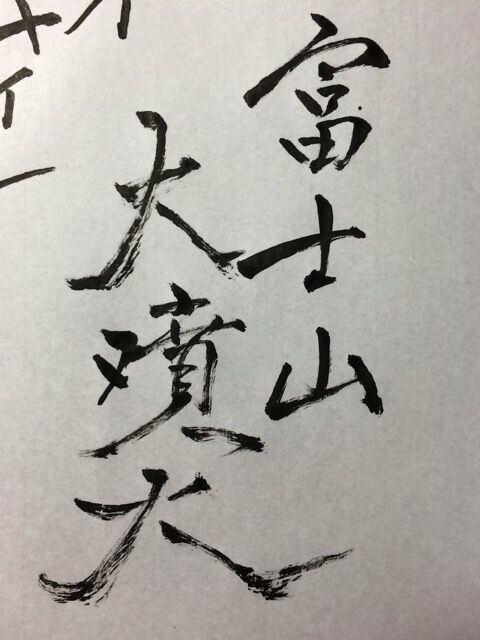 富士山
大噴火